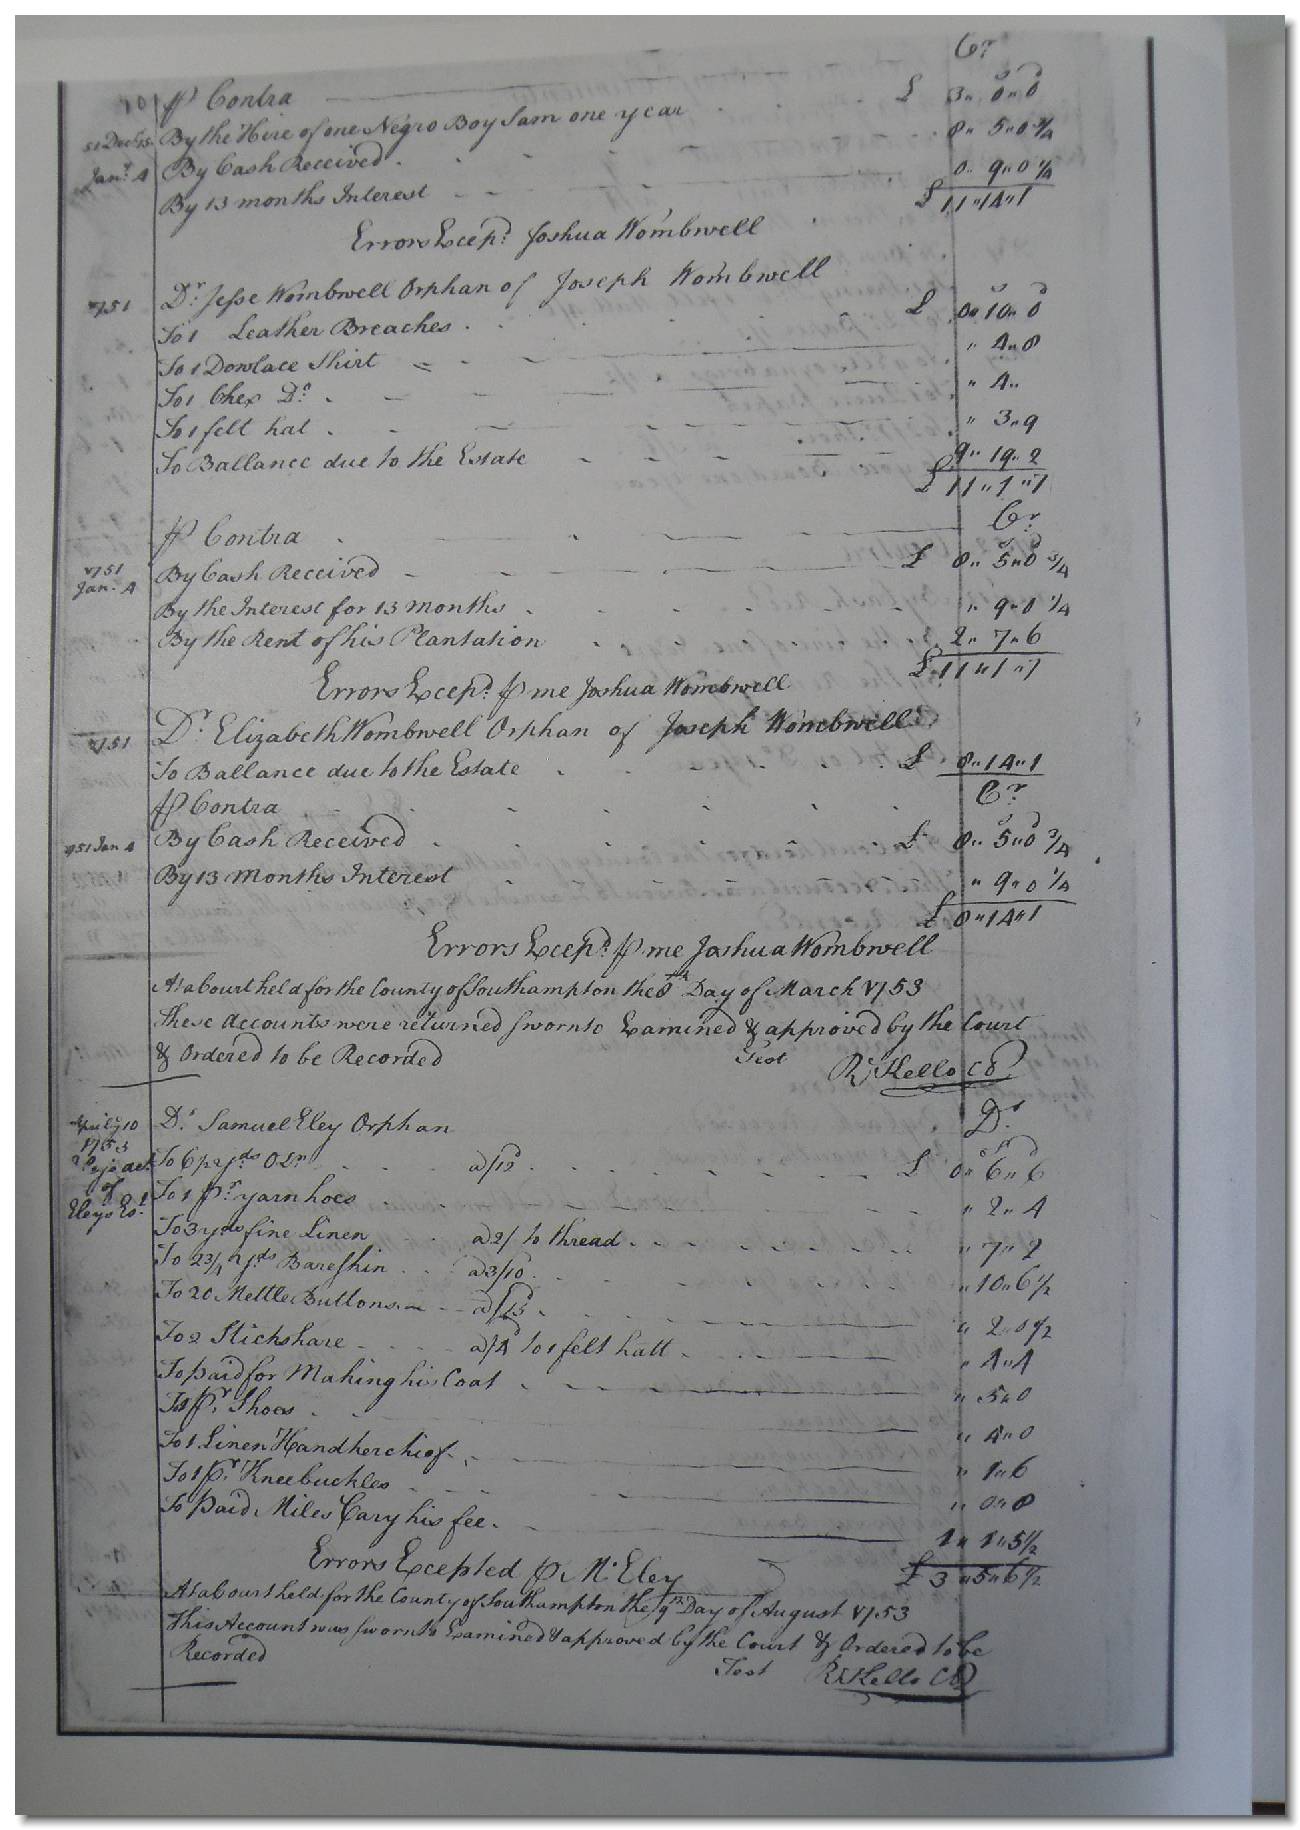 Cr
101 ⅌ Contra £ 3" 0" 0
31 Decr By the Hire of one Negro Boy Sam one year 8" 5" 0 3/4
Janr 4 By Cash Received 0" 9" 0 1/4
By 13 months Interest £ 11" 14" 1
Errors Excepd Joshua Wombwell
1751 Dr Jesse Wombwell Orphan of Joseph Wombwell
To 1 Leather Breaches £ 0" 10" 0
To 1 Dowlace Shirt " 4" 8
To 1 Chex Do " 4"
To 1 felt hat " 3" 9
To Ballance due to the Estate 9" 19" 2
£ 11" 1" 7
⅌ Contra Cr
1751 Jan. 4 By Cash Received £ 8" 5" 0 3/4
By the Interest for 13 months " 9" 0 1/4
By the Rent of his Plantation 2" 7" 6
£ 11" 1" 7
Errors Excepd ⅌ me Joshua Wombwell
1751 Dr Elizabeth Wombwell Orphan of Joseph Wombwell
To Ballance due to the Estate £ 8" 14" 1
⅌ Contra Cr
1751 Jan 4 By Cash Received £ 8" 5" 0 3/4
By 13 Months Interest " 9" 0 1/4
£ 8" 14" 1
Errors Excepd ⅌ me Joshua Wombwell
At a Court held for the County of Southampton the 8th Day of March 1753
These Accounts were returned sworn to Examined & approved by the Court
& Ordered to be Recorded Test Rd Kello CC
April 10 1753 Dr Samuel Eley Orphan Dr
To 6 yds a/12 £ 0" 6" 6
Eleys Est To 1 pr yarn hoes " 2" 4
To 3 yds fine Linen a 2/ to thread " 7" 2
To 2 3/4 yds Bareskin a 3/10 " 10" 6 1/2
To 20 Mettle Buttons a/15 " 2" 0 1/2
To 2 Stickshare a/4 to 1 felt hatt " 4" 4
To paid for Making his Coat " 5" 0
To 1 pr Shoes " 4" 0
To 1 Linen Handkerchief " 1" 6
To 1 pr Kneebuckles " 0" 8
To Paid Miles Cary his fee 1" 1" 5 1/2
Errors Excepted ⅌ M. Eley £ 3" 5" 6 1/2
At a Court held for the County of Southampton the 9th Day of August 1753
This Account was sworn to Examined & approved by the Court & Ordered to be
Recorded Test Rd Kello CC